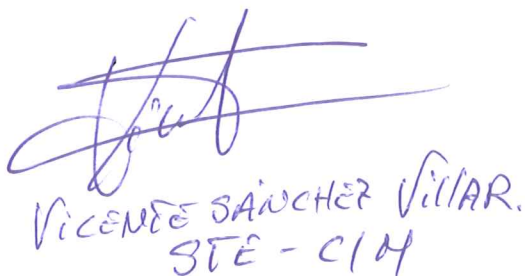 VICENTE SÁNCHEZ VILLAR.
STE - CLM